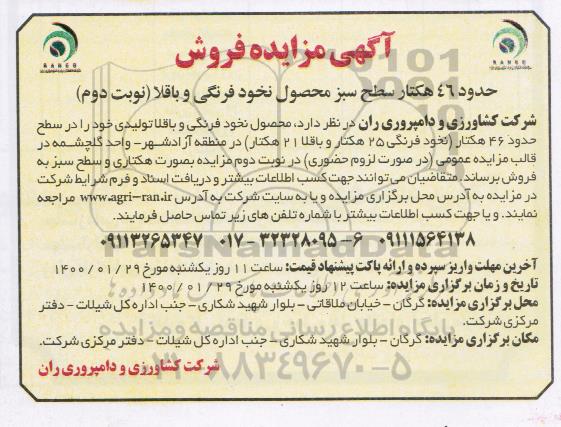 آگهی مزایده فروش
حدود ۴۶ هکتار سطح سبز محصول نخود فرنگی و باقلا (نوبت دوم)
شرکت کشاورزی و دامپروری ران در نظر دارد، محصول نخود فرنگی و باقلا تولیدی خود را در سطح
حدود ۴۶ هکتار (نخود فرنگی ۲۵ هکتار و باقلا ۲۱ هکتار) در منطقه آزادشهر- واحد گلچشمه در
قالب مزایده عمومی (در صورت لزوم حضوری) در نوبت دوم مزایده بصورت هکتاری و سطح سبز به
فروش برساند. متقاضیان می‌توانند جهت کسب اطلاعات بیشتر و دریافت اسناد و فرم شرایط شرکت
در مزایده به آدرس محل برگزاری مزایده و یا به سایت شرکت به آدرس www.agri-ran.ir مراجعه
نمایند. و یا جهت کسب اطلاعات بیشتر با شماره تلفن های زیر تماس حاصل فرمایند.
۰۹۱۱۱۵۶۴۱۳۸ ۰۱۷-۳۲۳۲۸۰۹۵-۶ ۰۹۱۱۳۲۶۵۳۴۷
آخرین مهلت واریز سپرده و ارائه پاکت پیشنهاد قیمت: ساعت ۱۱ روز یکشنبه مورخ ۱۴۰۰/۰۱/۲۹
تاریخ و زمان برگزاری مزایده: ساعت ۱۲ روز یکشنبه مورخ ۱۴۰۰/۰۱/۲۹
محل برگزاری مزایده: گرگان - خیابان ملاقاتی - بلوار شهید شکاری - جنب اداره کل شیلات - دفتر
مرکزی شرکت.
مکان برگزاری مزایده: گرگان - بلوار شهید شکاری - جنب اداره کل شیلات - دفتر مرکزی شرکت.
شرکت کشاورزی و دامپروری ران
پایگاه اطلاع رسانی مناقصه و مزایده
۰۲۱-۸۸۳۴۹۶۷۰-۵